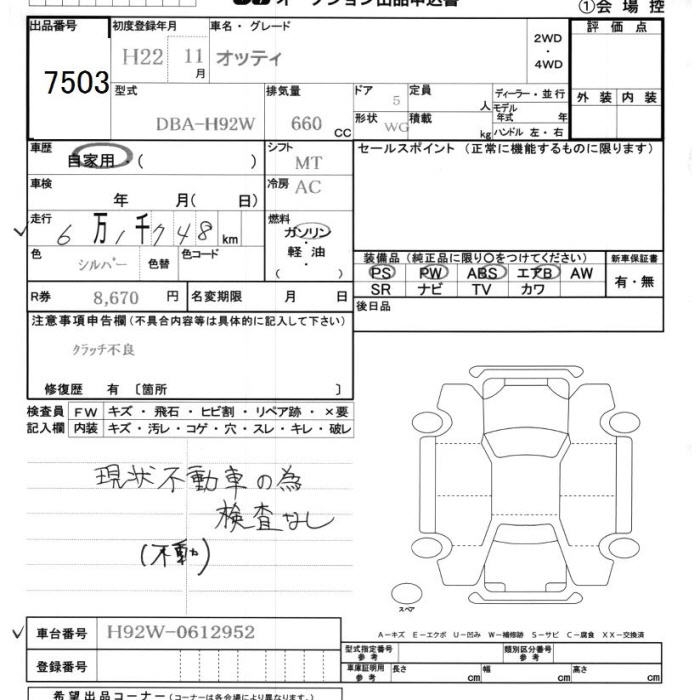 オークション出品申込書
①会場控
出品番号 初度登録年月 車名・グレード 評価点
7503 H22 11月 オッティ 2WD・4WD
型式 排気量 ドア 定員 ディーラー・並行 外装 内装
DBA-H92W 660cc 5 人 モデル年式 年
形状 WG 積載 kg ハンドル 左・右
車歴 シフト セールスポイント（正常に機能するものに限ります）
自家用・（ ） MT
車検 冷房 AC
年 月（ 日）
走行 燃料
6万1千748km ガソリン・軽・油（ ）
色 シルバー 色替 色コード
装備品（純正品に限り○をつけてください） 新車保証書
PS PW ABS エアB AW 有・無
SR ナビ TV カワ
R券 8,670円 名変期限 月 日
後日品
注意事項申告欄（不具合内容等は具体的に記入して下さい）
クラッチ不良
修復歴 有 〔箇所 〕
検査員 FW キズ・飛石・ヒビ割・リペア跡・×要
記入欄 内装 キズ・汚レ・コゲ・穴・スレ・キレ・破レ
現状不動車の為
検査なし
（不動）
スペア
A－キズ E－エクボ U－凹み W－補修跡 S－サビ C－腐食 XX－交換済
車台番号 H92W-0612952
型式指定番号 参考 類別区分番号 参考
登録番号
車庫証明用 参考 長さ cm 幅 cm 高さ cm
希望出品コーナー（コーナーは各会場により異なります。）